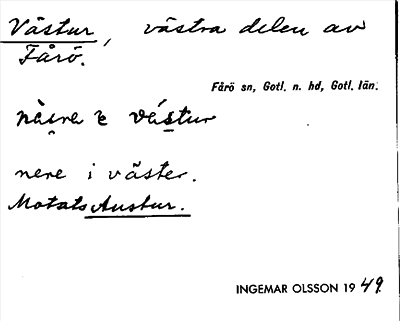 Västur, västra delen av
Fårö.
Fårö sn, Gotl. n. hd, Gotl. län.
västur
nere i väster.
Motats Austur.
INGEMAR OLSSON 1949